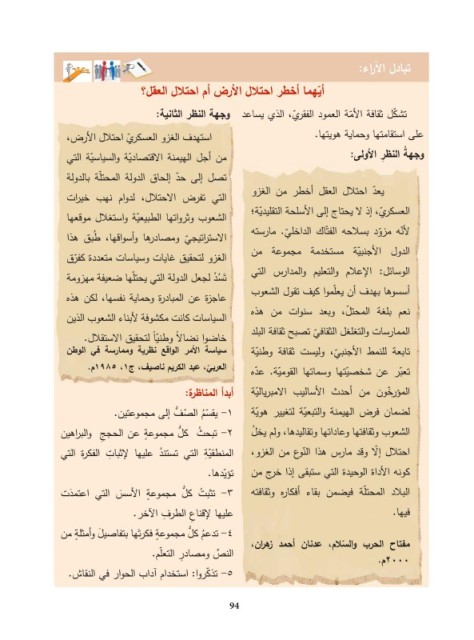 تبادل الآراء:
أيّهما أخطر احتلال الأرض أم احتلال العقل؟
تشكّل ثقافة الأمّة العمود الفقريّ، الذي يساعد
على استقامتها وحماية هويتها.
وجهةُ النظر الأولى:
يعدّ احتلال العقل أخطر من الغزو
العسكريّ، إذ لا يحتاج إلى الأسلحة التقليديّة؛
لأنّه مزوّد بسلاحه الفتّاك الداخليّ. مارسته
الدول الأجنبيّة مستخدمة مجموعة من
الوسائل: الإعلام والتعليم والمدارس التي
أسسوها بهدف أن يعلّموا كيف تقول الشعوب
نعم بلغة المحتلّ، وبعد سنوات من هذه
الممارسات والتغلغل الثقافيّ تصبح ثقافة البلد
تابعة للنمط الأجنبيّ، وليست ثقافة وطنيّة
تعبّر عن شخصيّتها وسماتها القوميّة. عدّه
المؤرخّون من أحدث الأساليب الامبرياليّة
لضمان فرض الهيمنة والتبعيّة لتغيير هويّة
الشعوب وثقافتها وعاداتها وتقاليدها، ولم يخلُ
احتلال إلّا وقد مارس هذا النّوع من الغزو،
كونه الأداة الوحيدة التي ستبقى إذا خرج من
البلاد المحتلّة فيضمن بقاء أفكاره وثقافته
فيها.
مفتاح الحرب والسّلام، عدنان أحمد زهران،
٢٠٠٠م.
وجهة النظر الثانية:
استهدف الغزو العسكريّ احتلال الأرض،
من أجل الهيمنة الاقتصاديّة والسياسيّة التي
تصل إلى حدّ إلحاق الدولة المحتلّة بالدولة
التي تفرض الاحتلال، لدوام نهب خيرات
الشعوب وثرواتها الطبيعيّة واستغلال موقعها
الاستراتيجيّ ومصادرها وأسواقها، طُبق هذا
الغزو لتحقيق غايات وسياسات متعددة كفرّق
تَسُدْ لجعل الدولة التي يحتلّها ضعيفة مهزومة
عاجزة عن المبادرة وحماية نفسها، لكن هذه
السياسات كانت مكشوفة لأبناء الشعوب الذين
خاضوا نضالاً وطنيّاً لتحقيق الاستقلال.
سياسة الأمر الواقع نظرية وممارسة في الوطن
العربيّ، عبد الكريم ناصيف، ج١، ١٩٨٥م.
أبدأ المناظرة:
١- يقسَّمُ الصفُّ إلى مجموعتين.
٢- تبحثُ كلُّ مجموعةٍ عن الحجج والبراهين
المنطقيّة التي تستندُ عليها لإثباتِ الفكرة التي
تؤيّدها.
٣- تثبّتُ كلُّ مجموعةٍ الأسسَ التي اعتمدَت
عليها لإقناعِ الطرفِ الآخر.
٤- تدعمُ كلُّ مجموعةٍ فكرتَها بتفاصيلَ وأمثلةٍ من
النصِّ ومصادرِ التعلّم.
٥- تذكّروا: استخدام آداب الحوار في النقاش.
94